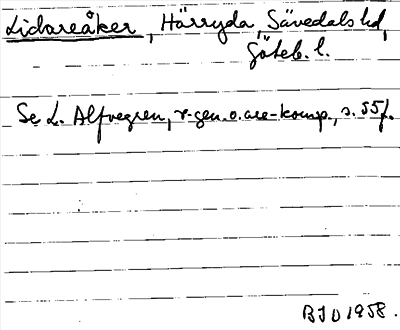 Lidareåker, Härryda, Sävedals hd,
Göteb. l.
Se L. Alfvegren, r-gen. o. are-komp., s. 55f.
BJ 1958.